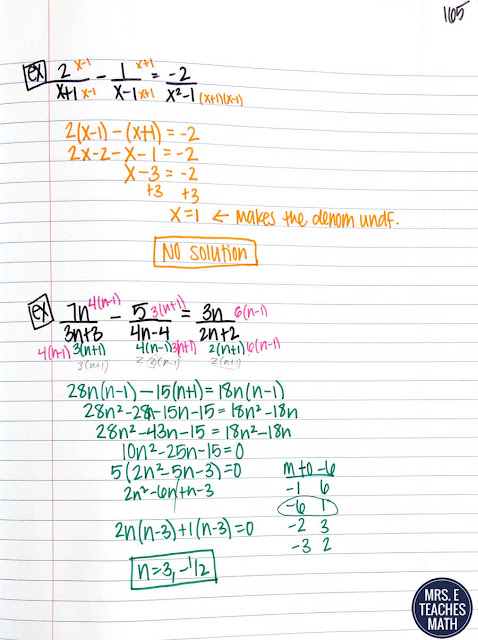 165
ex 2 x-1 - 1 x+1 = -2
x+1 x-1 x-1 x+1 x²-1 (x+1)(x-1)
2(x-1) - (x+1) = -2
2x-2-x-1=-2
x-3=-2
+3 +3
x=1 ← makes the denom undf.
NO SOLUTION
ex 7n 4(n-1) - 5 3(n+1) = 3n 6(n-1)
3n+3 4n-4 2n+2
4(n-1) 3(n+1) 4(n-1) 3(n+1) 2(n+1) 6(n-1)
3(n+1) 2(n+1)
28n(n-1) - 15(n+1) = 18n(n-1)
28n²-28n-15n-15=18n²-18n
28n²-43n-15=18n²-18n
10n²-25n-15=0
5(2n²-5n-3)=0
2n²-6n+n-3
m+o -6
-1 6
-6 1
-2 3
-3 2
2n(n-3)+1(n-3)=0
n=3, -1/2
MRS. E
TEACHES
MATH